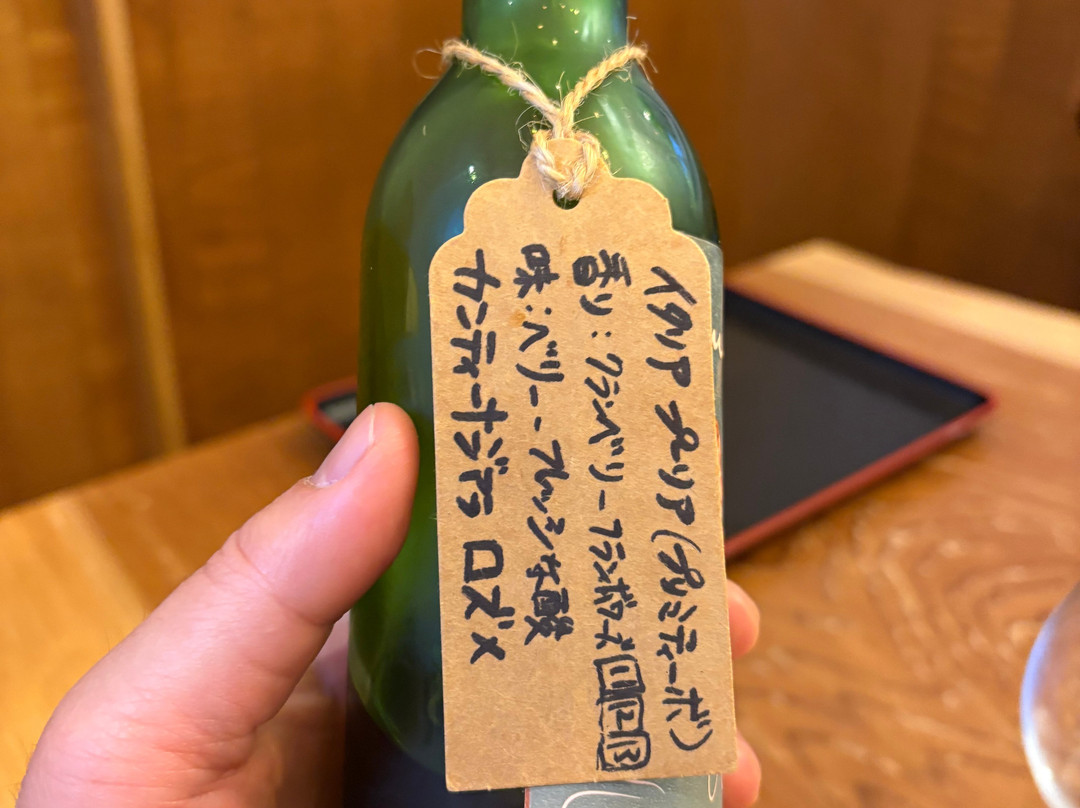 イタリア プリア(プリミティーボ)
香り:クランベリー フランボワーズ
味:ベリー フレッシュな酸
カンティーナジアラ ロズメ